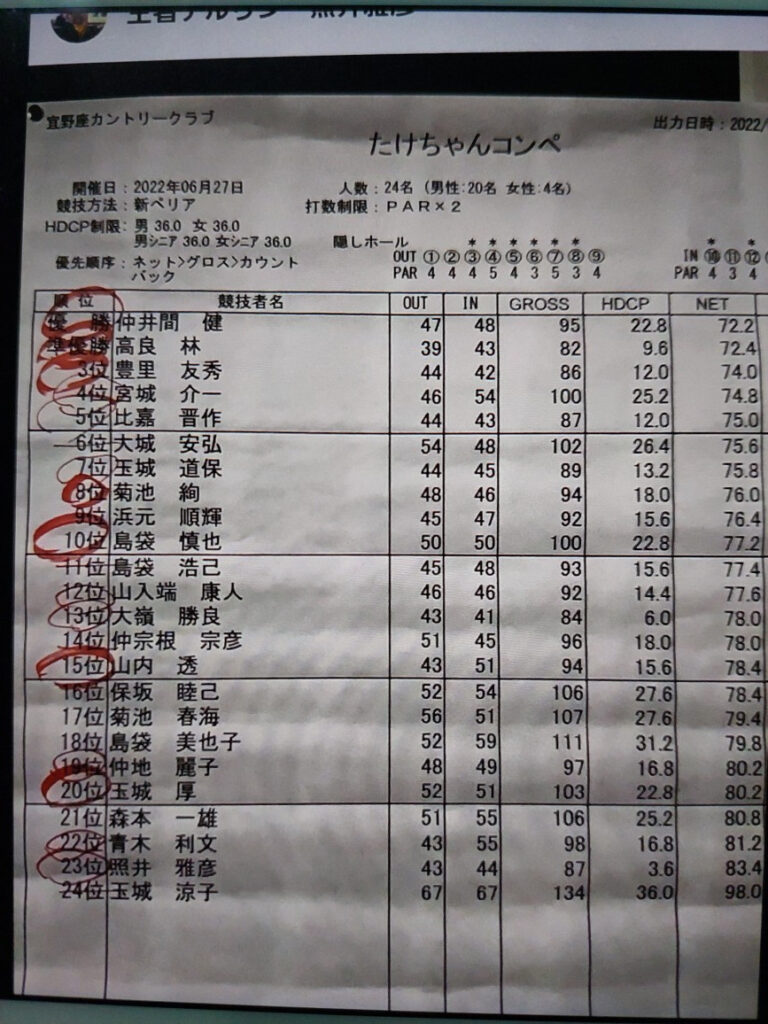 宜野座カントリークラブ 出力日時：2022/
たけちゃんコンペ
開催日：2022年06月27日 人数：24名（男性：20名 女性：4名）
競技方法：新ペリア 打数制限：ＰＡＲ×２
HDCP制限：男 36.0 女 36.0
男シニア 36.0 女シニア 36.0 隠しホール * * * * * * * *
優先順序：ネット>グロス>カウント OUT ①②③④⑤⑥⑦⑧⑨ IN ⑩⑪⑫
バック PAR 4 4 4 5 4 3 5 3 4 PAR 4 3 4
順位 競技者名 OUT IN GROSS HDCP NET
優勝 仲井間 健 47 48 95 22.8 72.2
準優勝 高良 林 39 43 82 9.6 72.4
3位 豊里 友秀 44 42 86 12.0 74.0
4位 宮城 介一 46 54 100 25.2 74.8
5位 比嘉 晋作 44 43 87 12.0 75.0
6位 大城 安弘 54 48 102 26.4 75.6
7位 玉城 道保 44 45 89 13.2 75.8
8位 菊池 絢 48 46 94 18.0 76.0
9位 浜元 順輝 45 47 92 15.6 76.4
10位 島袋 慎也 50 50 100 22.8 77.2
11位 島袋 浩己 45 48 93 15.6 77.4
12位 山入端 康人 46 46 92 14.4 77.6
13位 大嶺 勝良 43 41 84 6.0 78.0
14位 仲宗根 宗彦 51 45 96 18.0 78.0
15位 山内 透 43 51 94 15.6 78.4
16位 保坂 睦己 52 54 106 27.6 78.4
17位 菊池 春海 56 51 107 27.6 79.4
18位 島袋 美也子 52 59 111 31.2 79.8
19位 仲地 麗子 48 49 97 16.8 80.2
20位 玉城 厚 52 51 103 22.8 80.2
21位 森本 一雄 51 55 106 25.2 80.8
22位 青木 利文 43 55 98 16.8 81.2
23位 照井 雅彦 43 44 87 3.6 83.4
24位 玉城 涼子 67 67 134 36.0 98.0